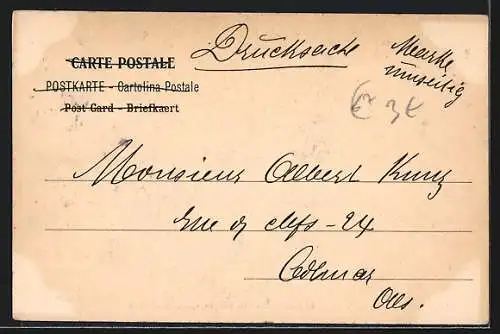 CARTE POSTALE
POSTKARTE - Cartolina Postale
Post Card - Briefkaart
Drucksache
Marke
umseitig
3€
Monsieur Albert Kunz
Rue d clefs - 24
Colmar